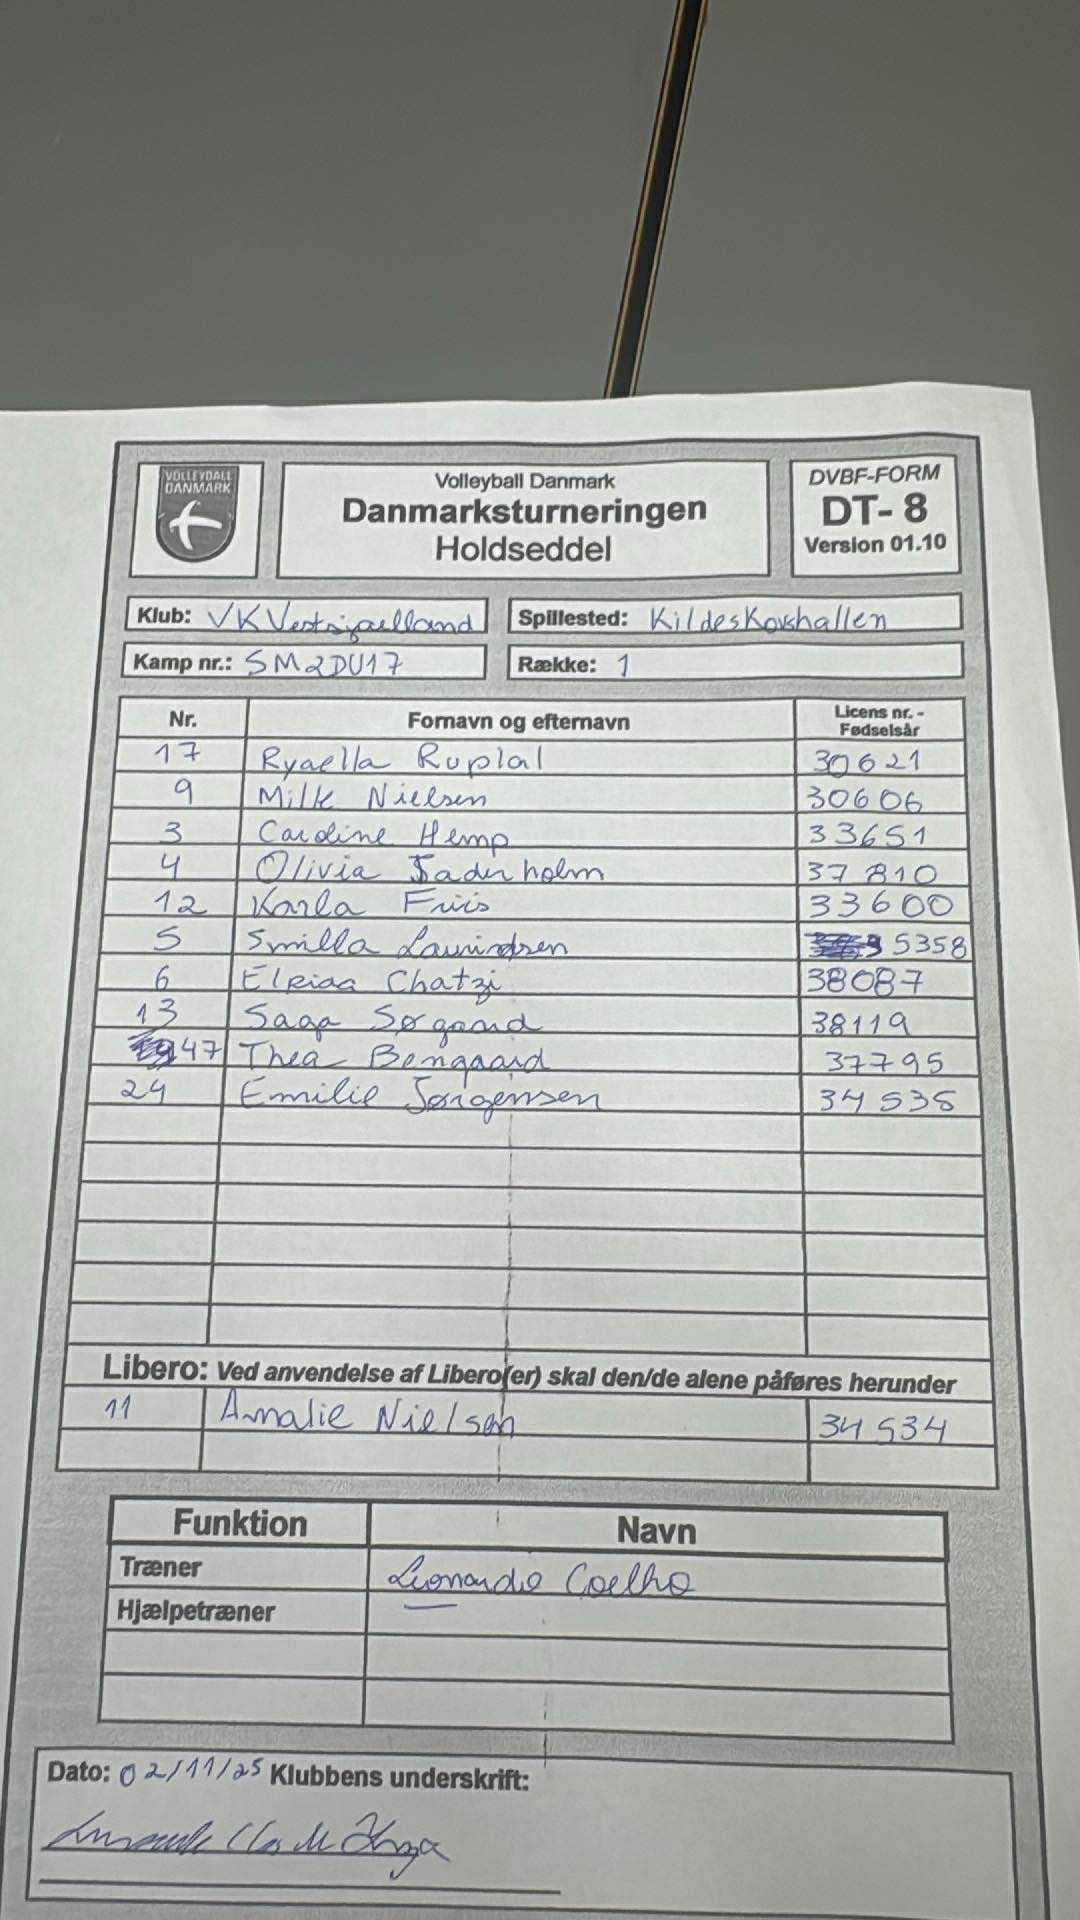 VOLLEYBALL
DANMARK
Volleyball Danmark
Danmarksturneringen
Holdseddel
DVBF-FORM
DT- 8
Version 01.10
Klub: VK Vestsjaelland Spillested: Kildeskovshallen
Kamp nr.: SM2DU17 Række: 1
Nr. Fornavn og efternavn Licens nr. - Fødselsår
17 Ryaella Ruplal 30621
9 Milk Nielsen 30606
3 Caroline Hemp 33651
4 Olivia Saderholm 37810
12 Karla Friis 33600
5 Smilla Lauridsen 35358
6 Elpiaa Chatzi 38087
13 Saga Søgaard 38119
47 Thea Bengaard 37795
24 Emilie Jørgensen 34535
Libero: Ved anvendelse af Libero(er) skal den/de alene påføres herunder
11 Amalie Nielsen 34534
Funktion Navn
Træner Leonardo Coelho
Hjælpetræner
Dato: 02/11/25 Klubbens underskrift: